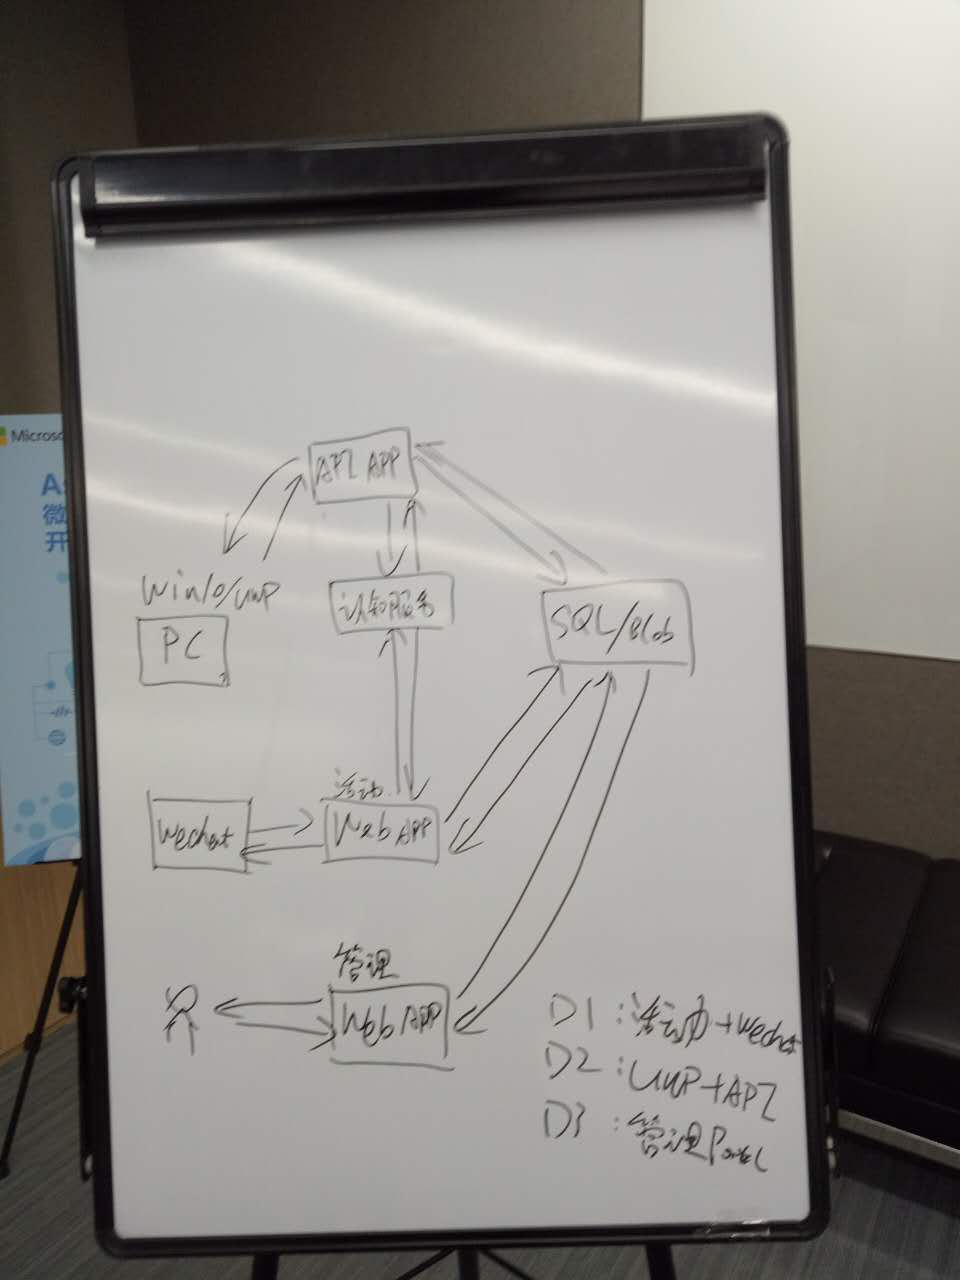 Microso
A
微
开
API APP
Win10/UWP
PC
认知服务
SQL/Blob
活动
Web APP
Wechat
管理
Web APP
D1：活动+Wechat
D2：UWP+API
D3：管理Portal